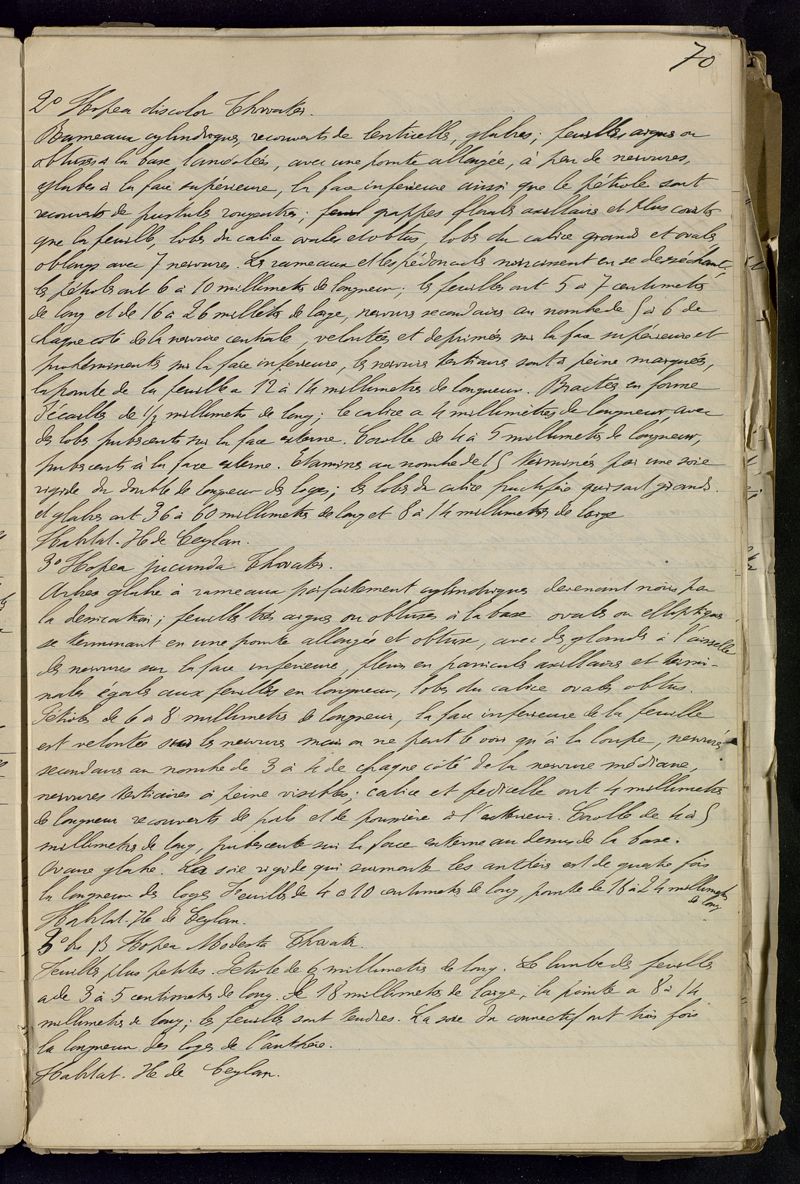 70
2º Hopea discolor Thwaites.
Rameaux cylindriques, recouverts de lenticelles, glabres; feuilles aigues ou
obtuses à la base lancéolées, avec une pointe allongée, à peu de nervures,
glabres à la face supérieure, la face inférieure ainsi que le pétiole sont
recouverts de pustules rougeatres; grappes florales axillaires et plus courtes
que la feuille, lobes du calice ovales et obtus, lobes du calice grands et ovales
oblongs avec 7 nervures. Les rameaux et les pédoncules noircissent en se desséchant,
les pétioles ont 6 à 10 millimetres de longueur; les feuilles ont 5 à 7 centimetres
de long et de 16 à 26 de large, nervures secondaires au nombre de 5 à 6 de
chaque coté de la nervure centrale, veloutées et déprimés sur la face supérieure et
proéminents sur la face inférieure, les nervures tertiaires sont à peine marquées,
la pointe de la feuille a 12 à 14 millimetres de longueur. Bractées en forme
d'écailles de 1/2 millimetre de long; le calice a 4 millimètres de longueur, avec
des lobes pubescents sur la face externe. Corolle de 4 à 5 millimetres de longueur,
pubescents à la face externe. Etamines au nombre de 15 terminés par une soie
rigide du double de longueur des loges; les lobes du calice fructifère qui sont grands
et glabres ont 36 à 60 millimetres de long et 8 à 14 millimetres de large
Habitat. Ile de Ceylan.
3º Hopea jucunda Thwaites.
Arbres glabre à rameaux parfaitement cylindriques devenant noirs par
la dessication; feuilles très aigues ou obtuses à la base ovales ou elliptiques
se terminant en une pointe allongée et obtuse, avec des glands à l'aisselle
des nervures sur la face inférieure, fleurs en panicules axillaires et termi-
nales égales aux feuilles en longueur, lobes du calice ovales obtus.
Pétioles de 6 à 8 millimetres de longueur, la face inférieure de la feuille
est veloutée sur les nervures mais on ne peut le voir qu'à la loupe, nervures
secondaires au nombre de 3 à 4 de chaque côté de la nervure médiane,
nervures tertiaires à peine visibles; calice et pedicelle ont 4 millimetres
de longueur recouverts de poils et de poussière à l'extérieur. Corolle de 4 à 5
millimetres de long, pubescente sur la face externe au dessus de la base.
Ovaire glabre. La soie rigide qui surmonte les anthères est de quatre fois
la longueur des loges. Feuilles de 4 à 10 centimetres de long, pointe de 16 à 24 millimetres
de long
Habitat. Ile de Ceylan.
3º bis β Hopea Modesta Thwaites.
Feuilles plus petites. Pétiole de 6 millimetres de long. Le limbe des feuilles
a de 3 à 5 centimetres de long. 18 millimetres de large, la pointe a 8 à 14
millimetres de long; les feuilles sont tendres. La soie du connectif ont trois fois
la longueur des loges de l'anthère.
Habitat. Ile de Ceylan.